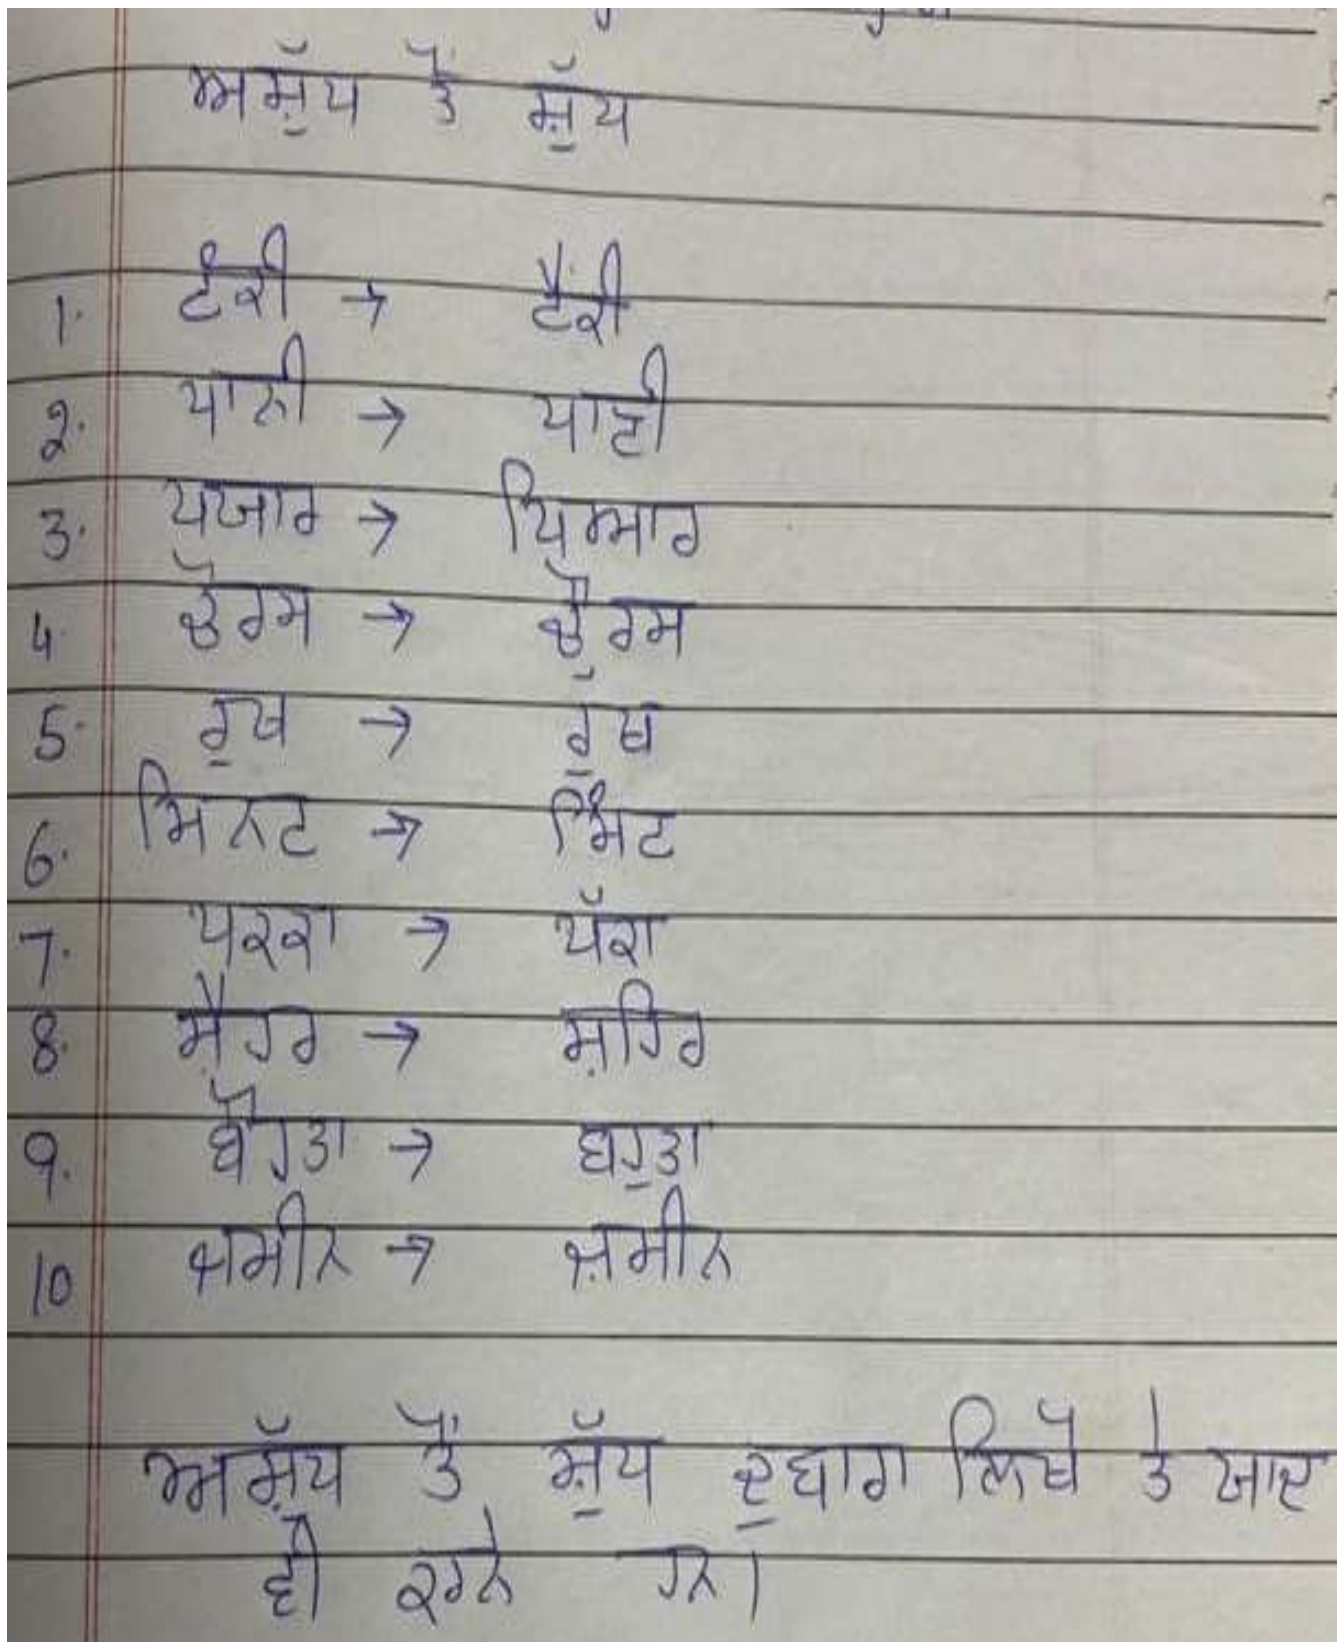 ਅਸ਼ੁੱਧ ਤੋਂ ਸ਼ੁੱਧ
1. ਟੰਕੀ → ਟੈਂਕੀ
2. ਪਾਨੀ → ਪਾਣੀ
3. ਪਯਾਰ → ਪਿਆਰ
4 ਚੋਰਸ → ਚੌਰਸ
5. ਰੁਖ → ਰੁੱਖ
6. ਮਿਨਟ → ਮਿੰਟ
7. ਪਕਕਾ → ਪੱਕਾ
8. ਸ਼ੈਹਰ → ਸ਼ਹਿਰ
9. ਬੌਹਤਾ → ਬਹੁਤਾ
10 ਜਮੀਨ → ਜ਼ਮੀਨ
ਅਸ਼ੁੱਧ ਤੋਂ ਸ਼ੁੱਧ ਦੁਬਾਰਾ ਲਿਖੋ ਤੇ ਯਾਦ
ਵੀ ਕਰਨੇ ਹਨ।